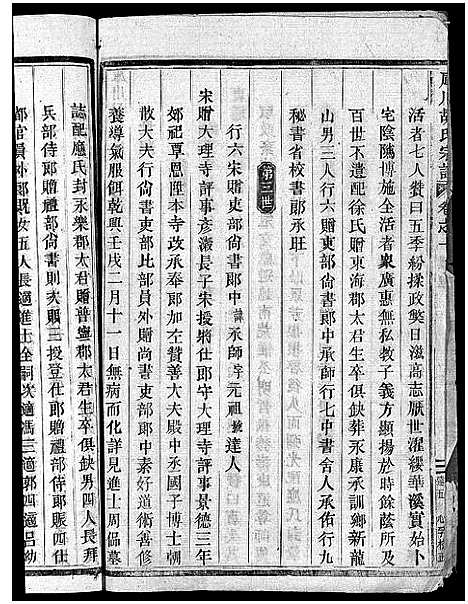 胡氏宗譜 卷之一
活者七人贊曰五季紛揉政獘日滋高志厭世濯纓華溪實始卜
宅陰隲博施全活者衆廣惠無私教子義方顯揚於時餘蔭所及
百世不遺配徐氏贈東海郡太君生卒俱缺葬承康承訓鄉新龍
山男三人行六贈吏部尙書郎中書舍人承佑行九
秘書省校書郎承旺
第三世
行六宋贈吏部尙書郎中承師字元祖獉達人
宋贈大理寺評事彥㵮長子宋授將仕郎守大理寺評事景德三年
郊祀覃恩陞本寺改承奉郎加左贊善大夫殿中國子博士朝
散大夫行尙書比部員外贈尙書吏部郎中素好道術善修
養導氣服餌乾興壬戌二月十一日無病而化詳見進士周偘墓
誌配應氏封永樂郡太君贈普寧郡太君生卒俱缺男四人長拜
兵部侍郎贈禮部尙書則次贈三班授登仕郎贈禮部侍郎賑四仕
都官員外郎旣女五人長適進士全嗣次適馮三適郭四適呂幼